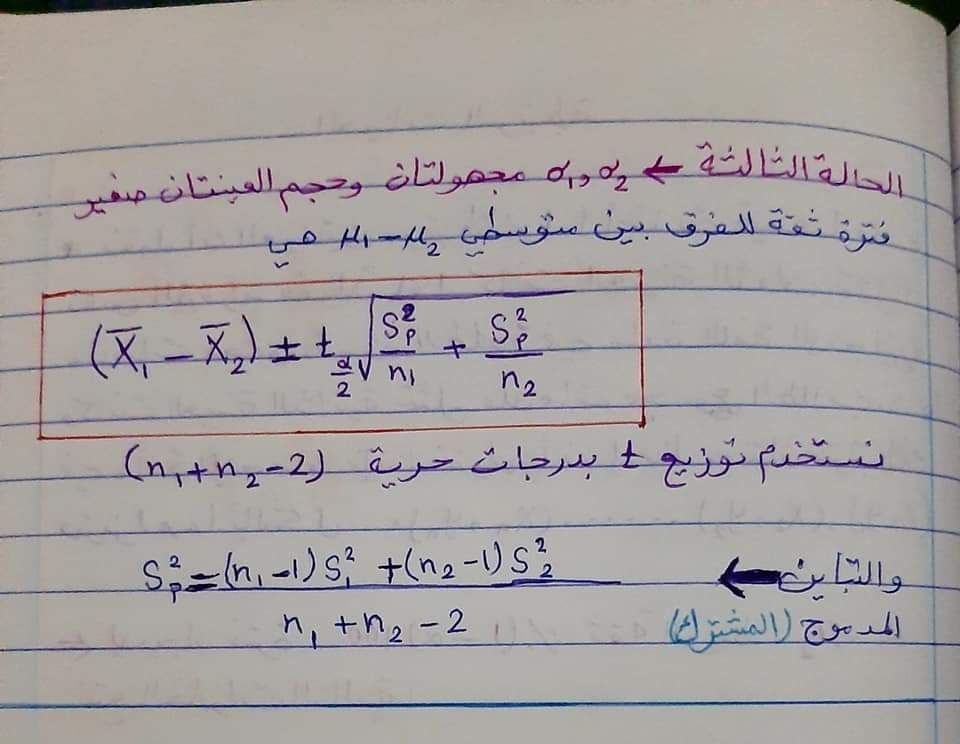 الحالة الثالثة ← σ₁, σ₂ مجهولتان وحجم العينتان صغير
فترة ثقة للفرق بين متوسطي μ₁ - μ₂ هي
(X̄₁ - X̄₂) ± t_(α/2) √(Sₚ²/n₁ + Sₚ²/n₂)
نستخدم توزيع t بدرجات حرية (n₁+n₂-2)
والتباين ← Sₚ² = ((n₁-1)S₁² + (n₂-1)S₂²) / (n₁+n₂-2)
المدموج (المشترك)